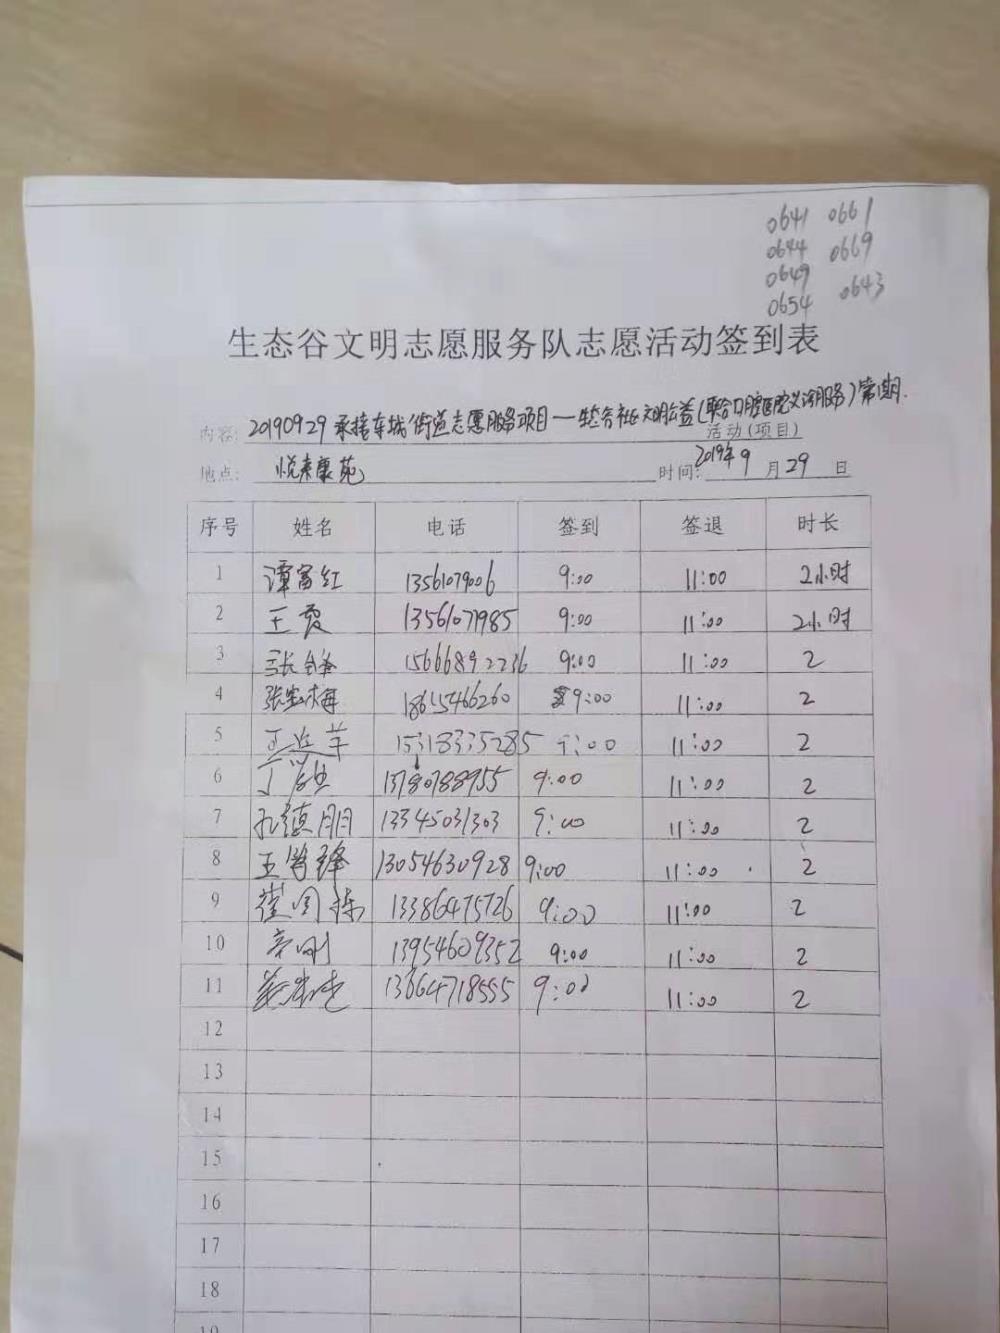 0641 0661
0644 0669
0649
0654 0643
生态谷文明志愿服务队志愿活动签到表
内容: 20190929承接车城街道志愿服务项目—生态谷社区文明公益(联合口腔医院义诊服务)第1期.
活动(项目)
地点: 悦来康苑 时间: 2019年9月29日
序号 姓名 电话 签到 签退 时长
1 谭富红 13561079006 9:00 11:00 2小时
2 王霞 13561071985 9:00 11:00 2小时
3 15666892236 9:00 11:00 2
4 18615466260 9:00 11:00 2
5 15318335285 9:00 11:00 2
6 13780788955 9:00 11:00 2
7 孔德朋 13345031303 9:00 11:00 2
8 13054630928 9:00 11:00 2
9 崔国栋 13386475726 9:00 11:00 2
10 13954609352 9:00 11:00 2
11 13664718555 9:00 11:00 2
12
13
14
15
16
17
18
19